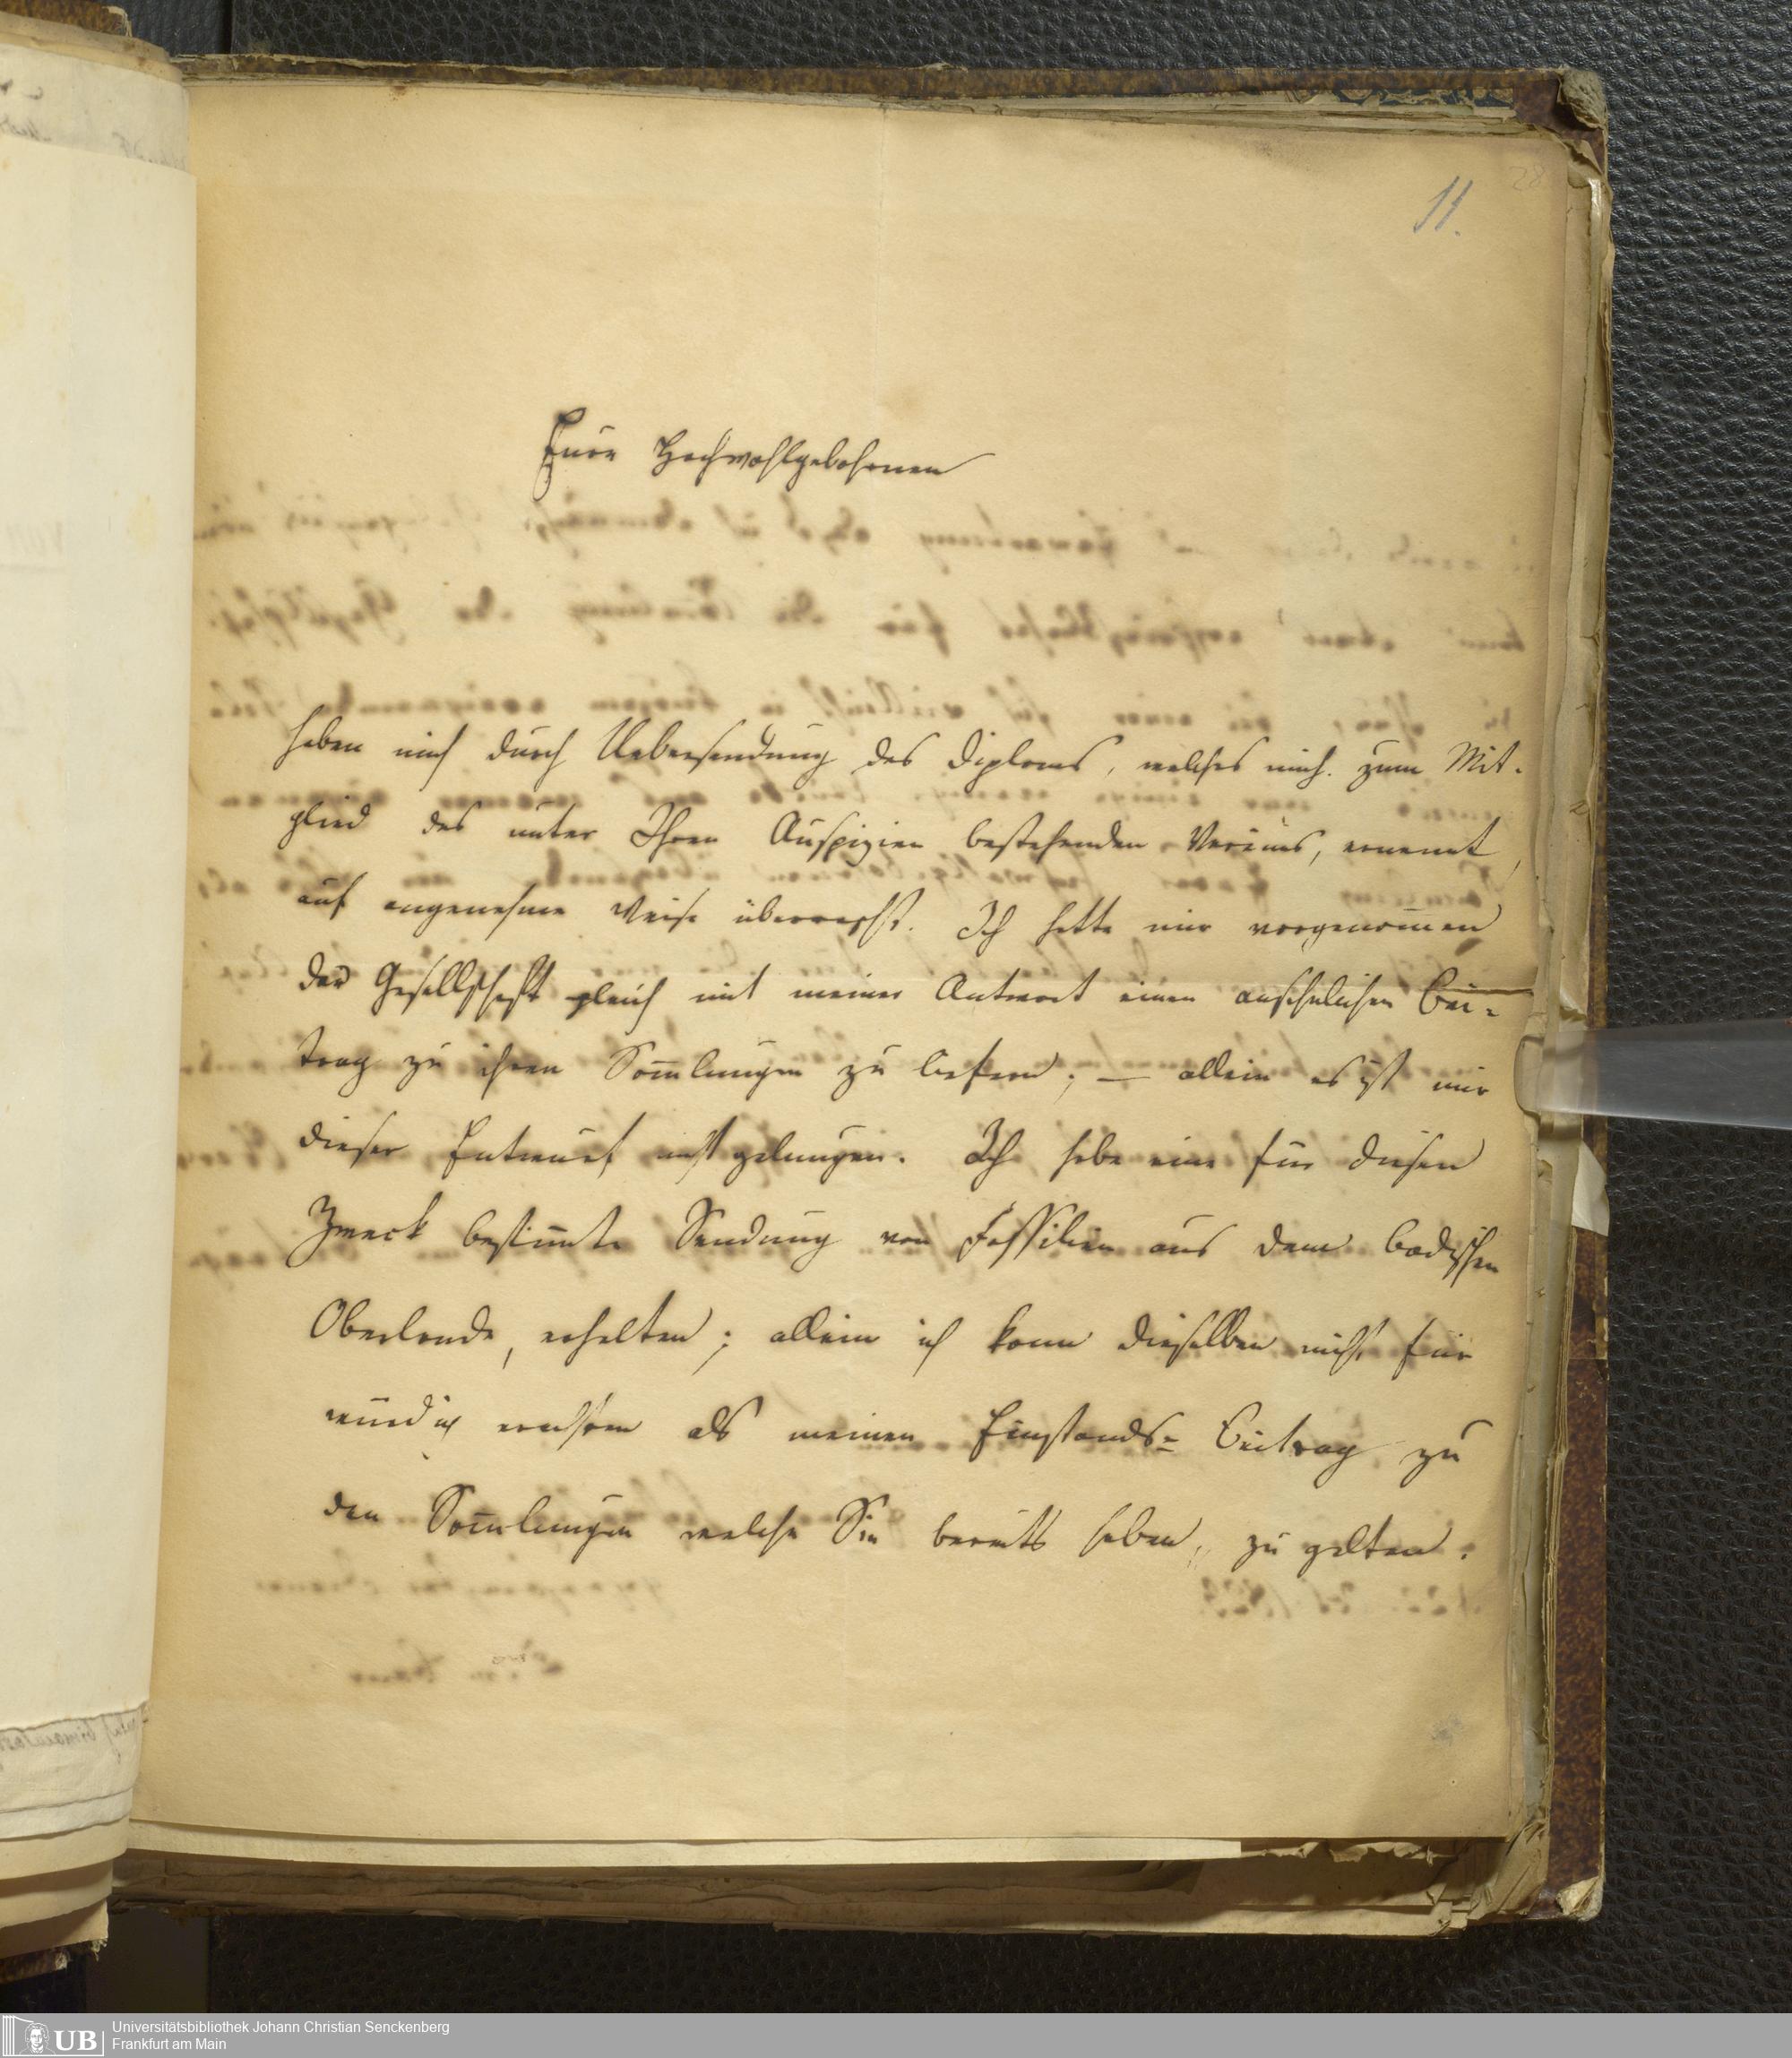 28
11.
Eure Hochwohlgebohrnen
haben mich durch Uebersendung des Diploms, welches mich zum Mit-
glied des unter Ihren Auspizien bestehenden Vereins, ernennt,
auf angenehme Weise überrascht. Ich hatte mir vorgenom̅en
der Gesellschaft gleich mit meiner Antwort einen ansehnlichen Bei-
trag zu ihren Sam̅lungen zu liefern; — allein es ist mir
dieser Entwurf nicht gelungen. Ich habe eine für diesen
Zweck bestim̅te Sendung von Fossilien aus dem badischen
Oberlande, erhalten; allein ich kann dieselben nicht für
würdig erachten als meinen Einstands= Beitrag zu
den Sam̅lungen welche Sie bereits haben, zu gelten.
UB
Universitätsbibliothek Johann Christian Senckenberg
Frankfurt am Main